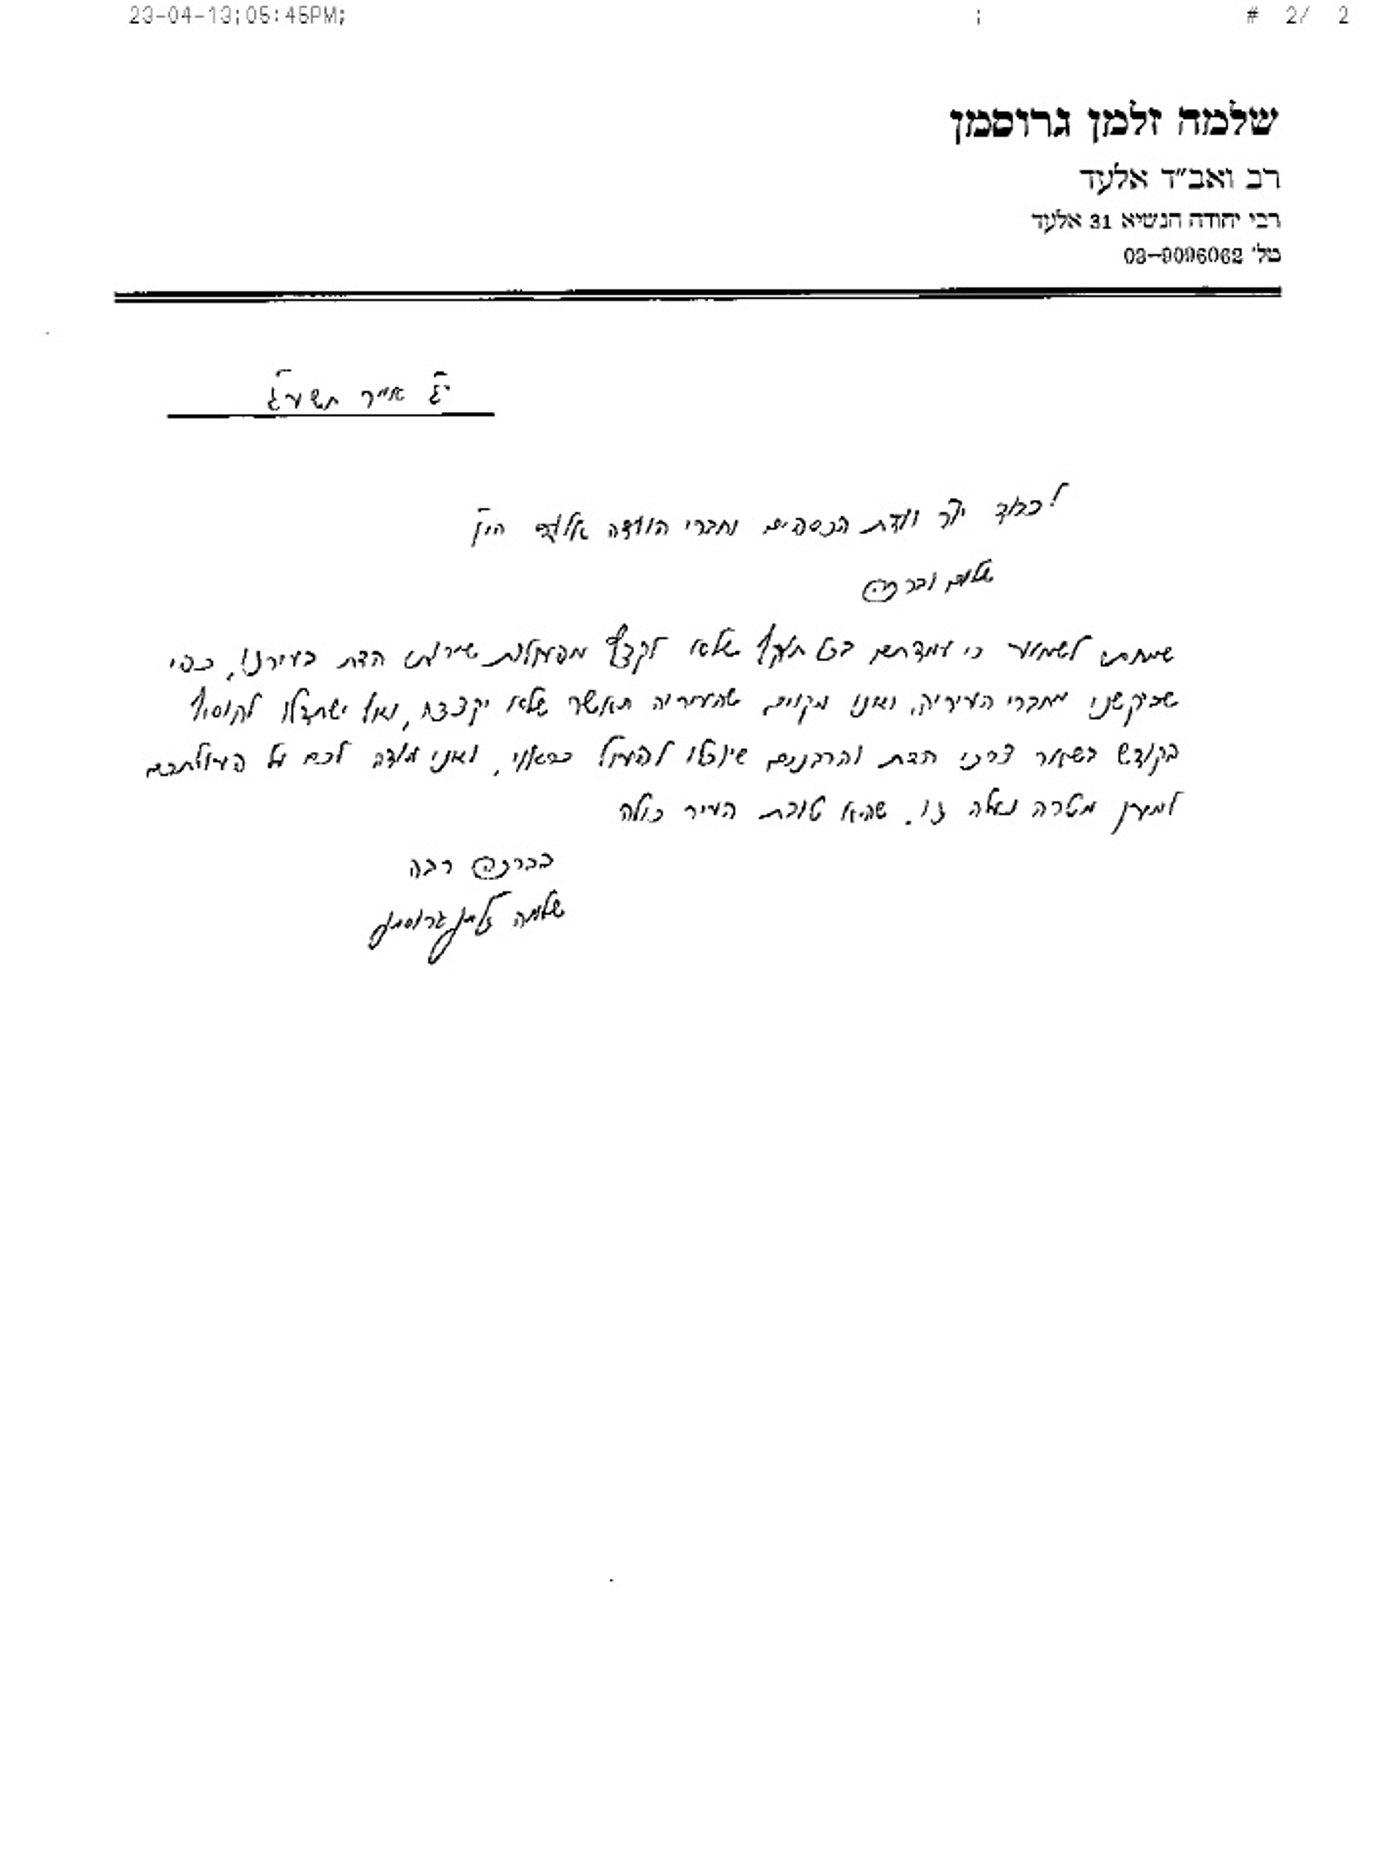 23-04-13;05:45PM; ; # 2/ 2
שלמה זלמן גרוסמן
רב ואב״ד אלעד
רבי יהודה הנשיא 31 אלעד
טל׳ 03-9096062
י״ג אייר תשע״ג
לכבוד יו״ר וועדת הכספים וחברי הוועדה אלעד הי״ו
שלום וברכה
שמחתי לשמוע כי עמדתם בכל תוקף שלא לקצץ מפעולות שירותי הדת בעירנו, כפי
שביקשנו מחברי העיריה, ואנו מקוים שהעיריה תאשר שלא יקצצו, ואף ישתדלו להוסיף
בקודש בשאר צרכי הדת והרבנים שיוכלו לפעול כראוי, ואני מודה לכם על פעולתכם
למען מטרה נעלה זו. שהיא טובת העיר כולה
בברכה רבה
שלמה זלמן גרוסמן